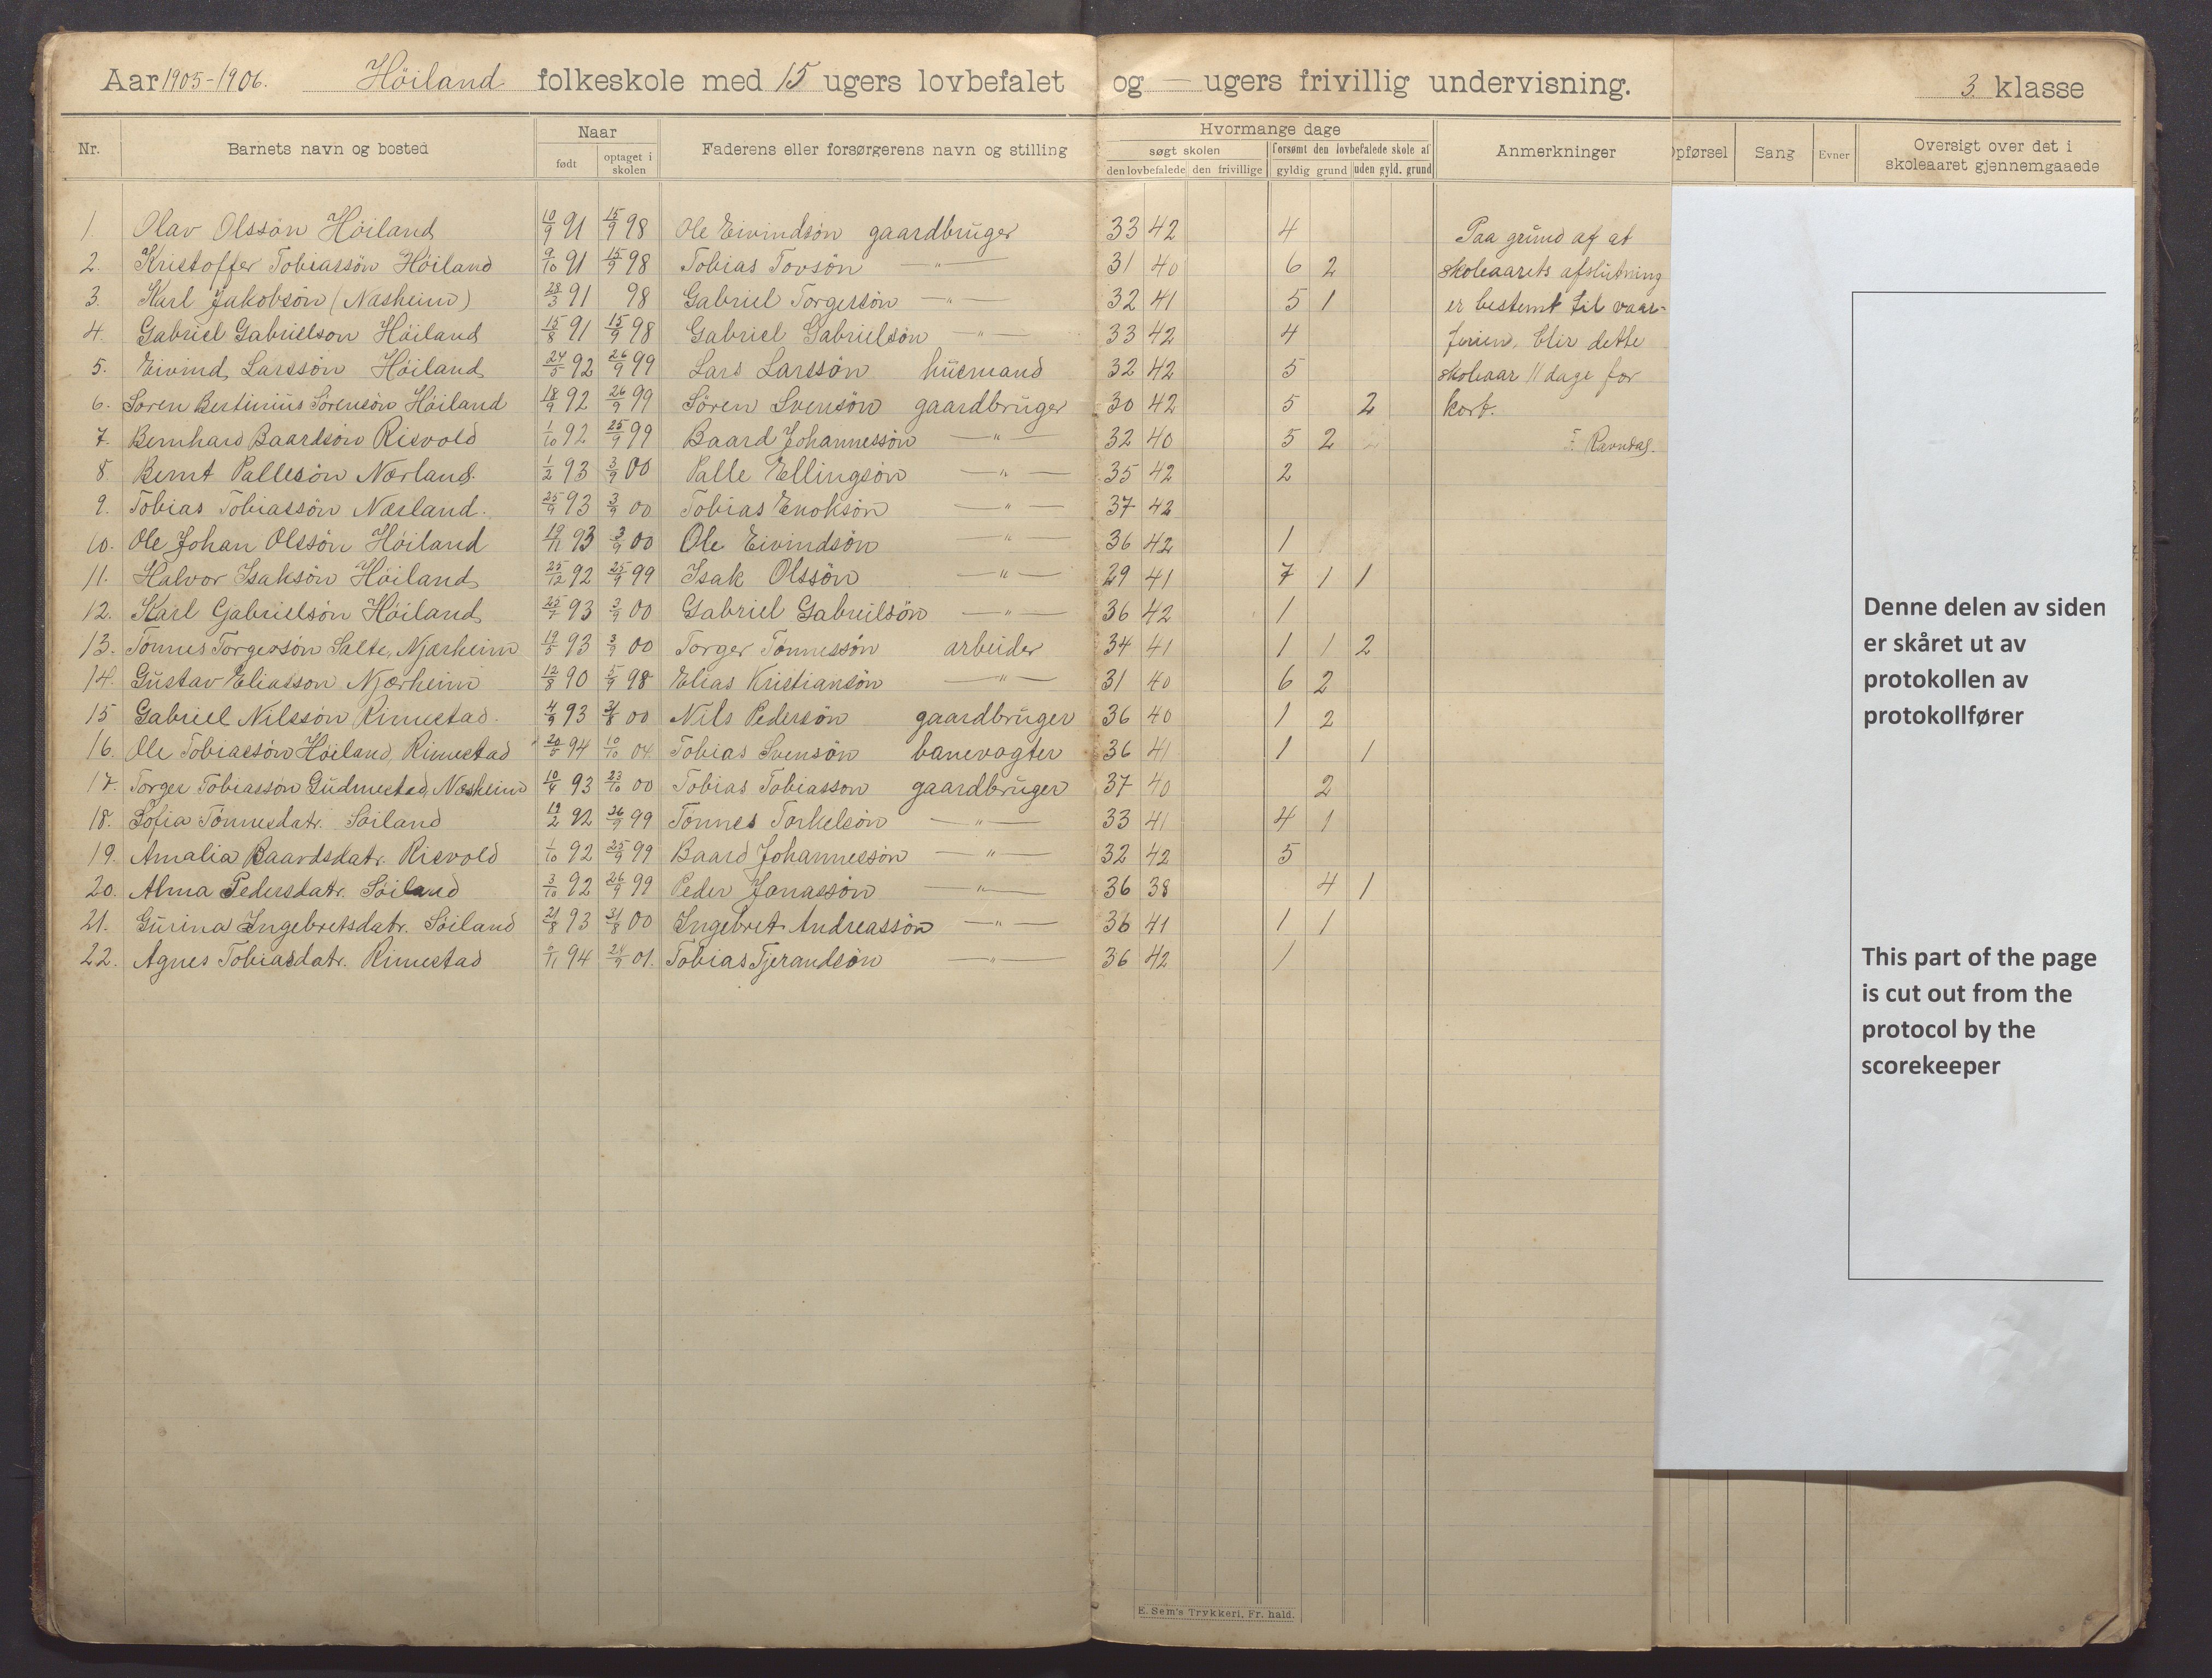 Aar 1905-1906. Höiland folkeskole med 15 ugers lovbefalet og — ugers frivillig undervisning. 3. klasse
Nr. Barnets navn og bosted Naar født optaget i skolen Faderens eller forsørgerens navn og stilling Hvormange dage søgt skolen den lovbefalede den frivillige forsømt den lovbefalede skole af gyldig grund uden gyld. grund Anmerkninger Opførsel Sang Evner Oversigt over det i skoleaaret gjennemgaaede
1. Olav Olssön Höiland 10/9 91 15/9 98 Ole Eivindsön gaardbruger 33 42 4 Paa grund af at
2. Kristoffer Tobiassön Höiland 9/10 91 15/9 98 Tobias Tovsön —"— 31 40 6 2 skoleaarets afslutning
3. Karl Jakobsön (Næsheim) 28/3 91 98 Gabriel Torgersön —"— 32 41 5 1 er bestemt til vaar-
4. Gabriel Gabrielson Höiland 15/8 91 15/9 98 Gabriel Gabrielsön —"— 33 42 4 ferien, blir dette
5. Eivind Larssön Höiland 24/5 92 26/9 99 Lars Larssön husmand 32 42 5 skoleaar 11 dage for
6. Sören Bertinius Sörensön Höiland 18/9 92 26/9 99 Sören Svensön gaardbruger 30 42 5 2 kort.
7. Bernhard Baardsön Risvold 1/10 92 25/9 99 Baard Johannessön —"— 32 40 5 2 T. Ravndal.
8. Bernt Pallesön Nærland. 1/2 93 3/9 00 Palle Ellingsön —"— 35 42 2
9. Tobias Tobiassön Nærland. 25/9 93 3/9 00 Tobias Enoksön —"— 37 42
10. Ole Johan Olssön Höiland 19/11 93 3/9 00 Ole Eivindsön —"— 36 42 1
11. Halvor Isaksön Höiland 25/12 92 25/9 99 Isak Olssön —"— 29 41 7 1 1
12. Karl Gabrielsön Höiland 25/7 93 3/9 00 Gabriel Gabrielsön —"— 36 42 1
13. Tönnes Torgersön Salte, Njærheim 19/5 93 3/9 00 Torger Tönnessön arbeider 34 41 1 1 2
14. Gustav Eliasson Njærheim 12/8 90 5/9 98 Elias Kristiansön —"— 31 40 6 2
15 Gabriel Nilssön Rimestad. 4/9 93 31/8 00 Nils Pedersön gaardbruger 36 40 1 2
16. Ole Tobiassön Höiland, Rimestad 20/5 94 10/10 04. Tobias Svensön banevogter 36 41 1 1
17. Torger Tobiasson Gudmestad, Næsheim 10/4 93 23/10 00 Tobias Tobiasson gaardbruger 37 40 2
18. Sofia Tönnesdatr. Söiland 19/2 92 26/9 99 Tönnes Torkelsön —"— 33 41 4 1
19. Amalia Baardsdatr. Risvold 1/10 92 25/9 99 Baard Johannessön —"— 32 42 5
20. Alma Pedersdatr. Söiland 3/10 92 26/9 99 Peder Jonassön —"— 36 38 4 1
21. Gurina Ingebretsdatr. Söiland 21/8 93 31/8 00 Ingebret Andreassön —"— 36 41 1 1
22. Agnes Tobiasdatr. Rimestad 94 24/9 01. Tobias Tjerandsön —"— 36 42 1
Denne delen av siden
er skåret ut av
protokollen av
protokollfører
This part of the page
is cut out from the
protocol by the
scorekeeper
E. Sem's Trykkeri, Fr. hald.